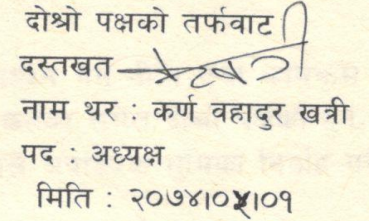 दोश्रो पक्षको तर्फवाट
दस्तखत
नाम थर : कर्ण वहादुर खत्री
पद : अध्यक्ष
मिति : २०७४।०५।०१